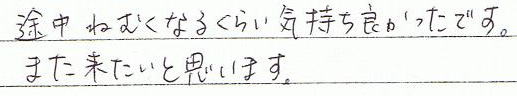 途中ねむくなるくらい気持ち良かったです。
また来たいと思います。